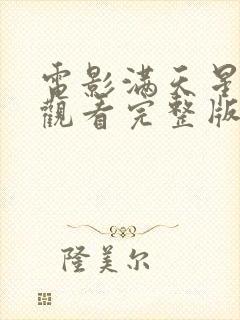 電影滿天星
觀看完整版
隆美尔